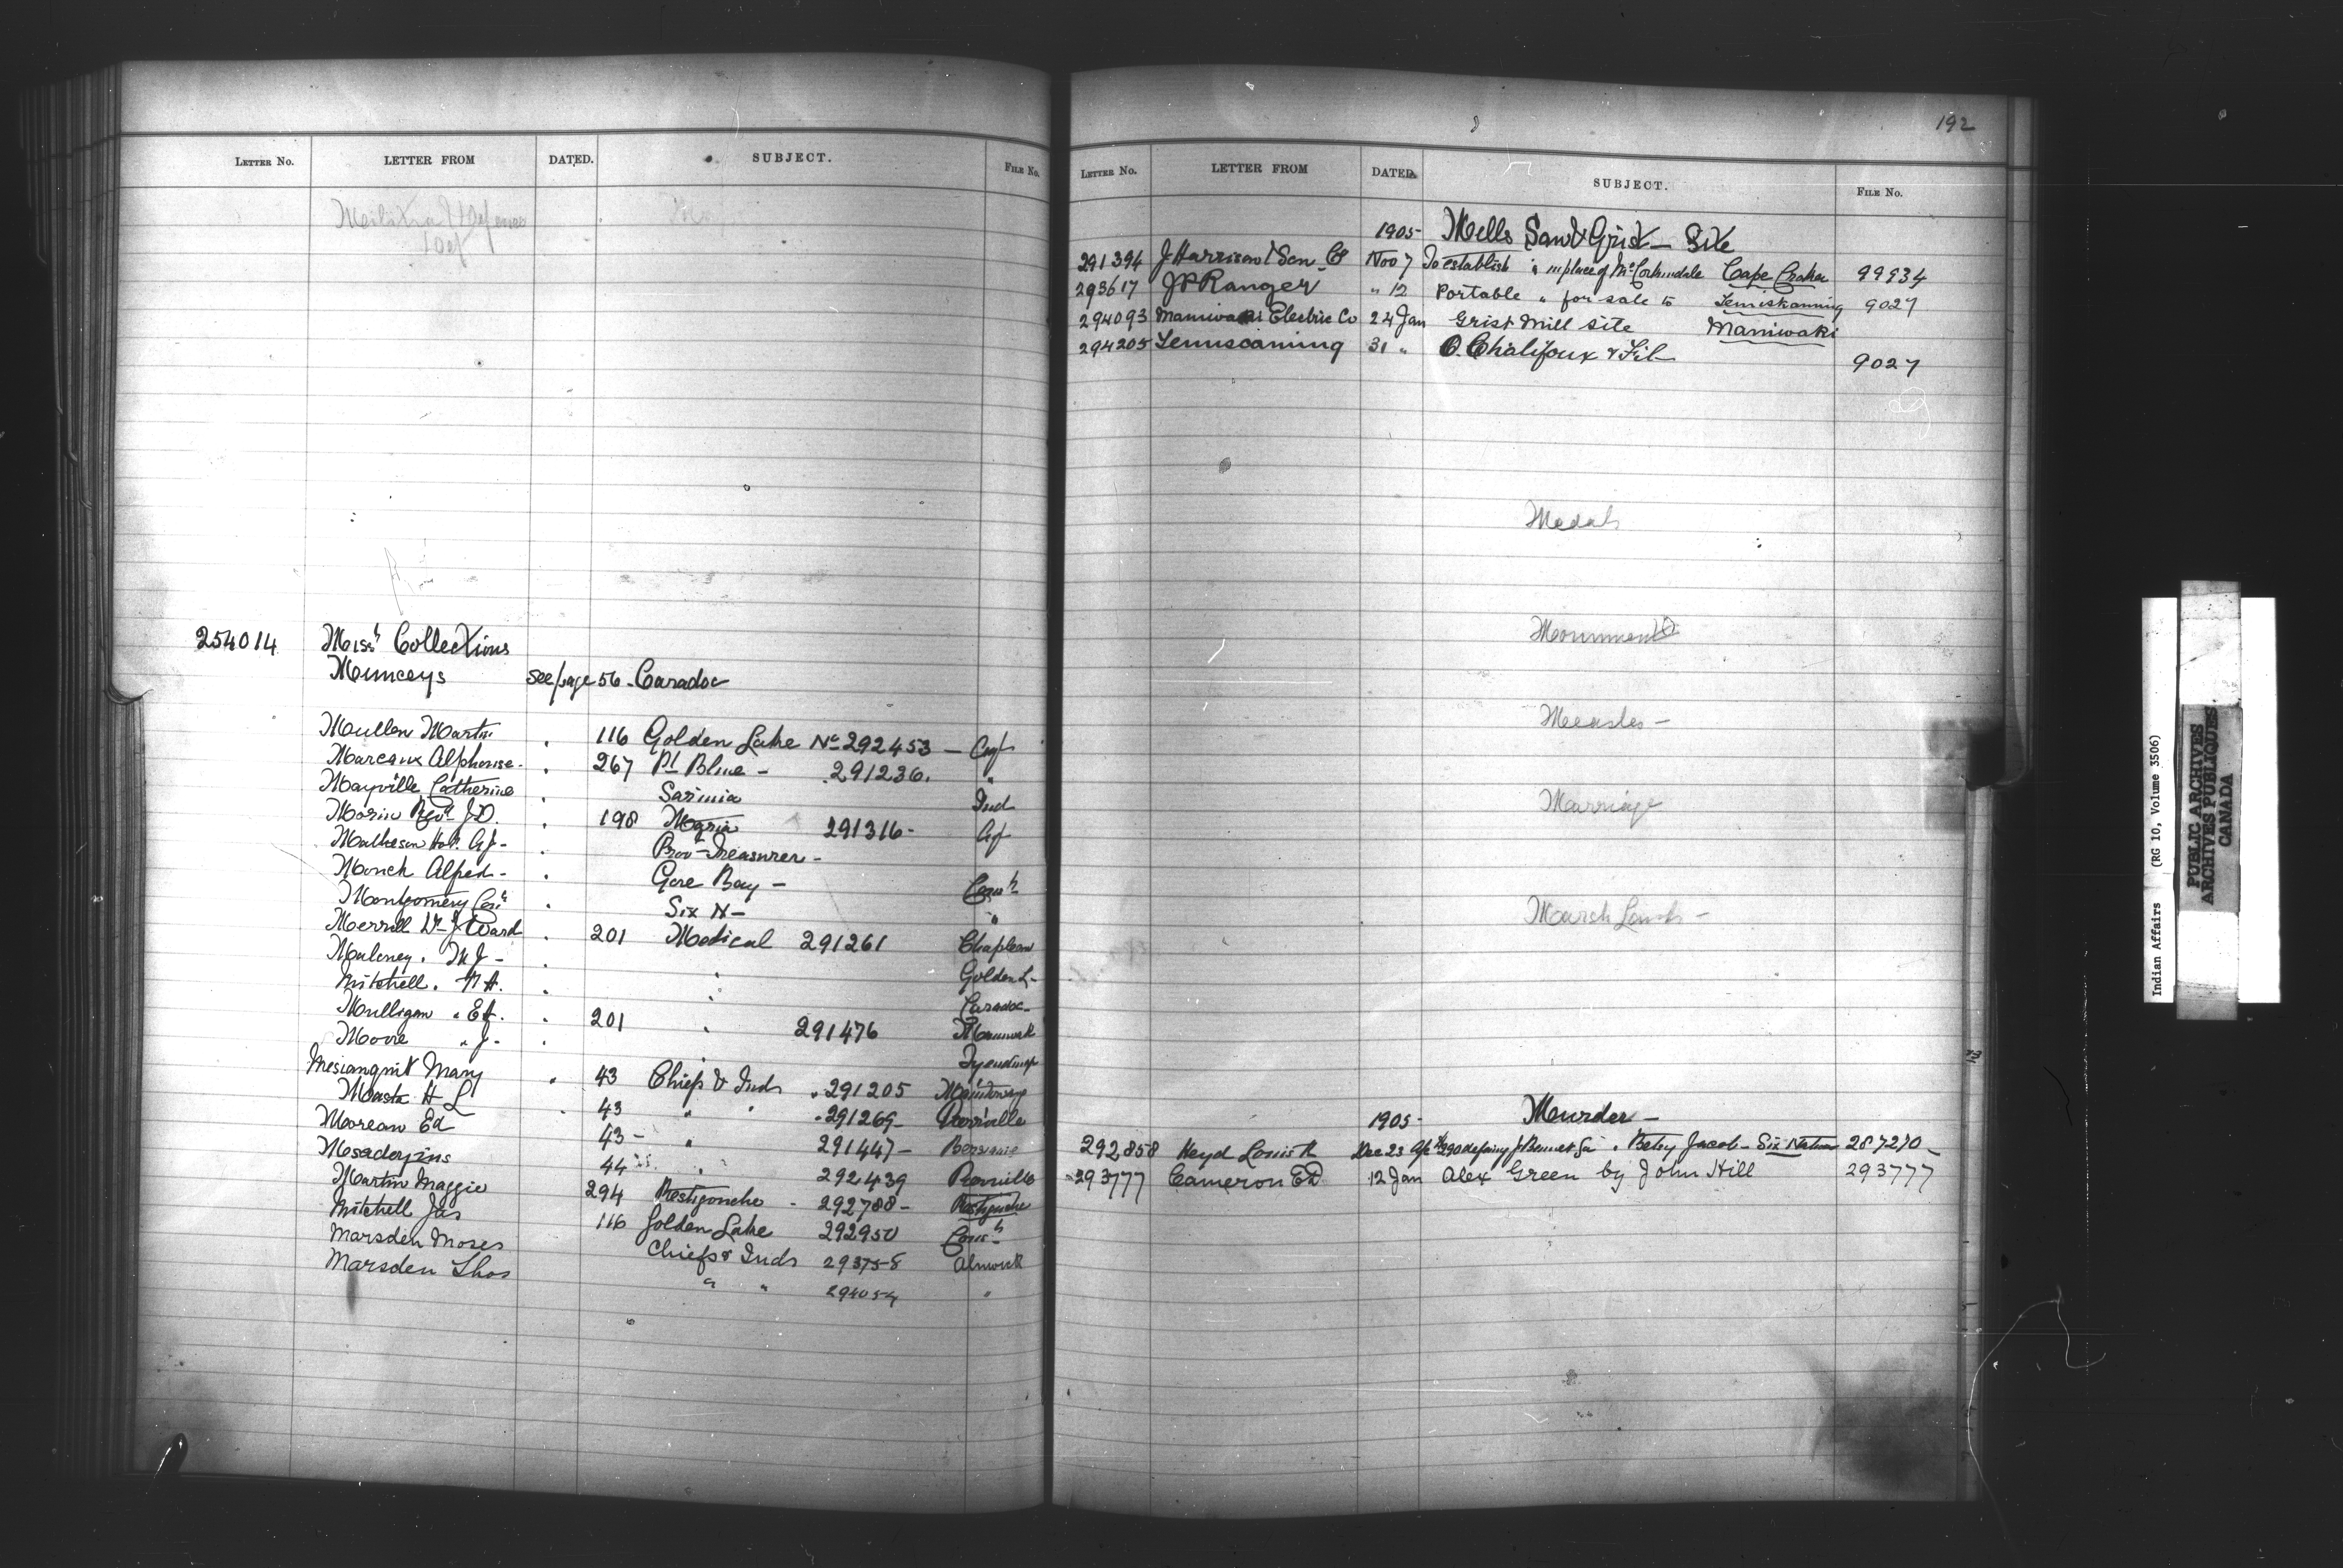 LETTER NO. LETTER FROM DATED. SUBJECT. FILE No.
Militia & Defence
Dept
254014 Misc' Collections
Munceys see page 56 - Caradoc
Mullen Martin . 116 Golden Lake No 292453 - Agt
Marcaux Alphonse - . 267 Pt Blue - 291236. "
Mayville Catherine . Sarnia Ind
Morin Revd J.D. . 198 Maria 291316 - Agt
Matheson Hon. A.J - . Prov - Treasurer -
Monck Alfred - . Gore Bay -
Montgomery . Six N - "
Merrill Dr J Ward . 201 Medical 291261 Chapleau
Maloney . M J - . Golden L -
Mitchell . . Caradoc -
Mulligan " . 201 " 291476
Moore " J - . Tyendinaga
Mesianquit Mary . 43 Chiefs & Inds . 291205
Masta H L . 43 " " . 291269 - Pierreville
Moreau Ed 43 - " 291447 - Bersimis
44 " 292439 Pierreville
Martin Maggie 294 Restigouche - 292788 - Restigouche
Mitchell Jas 116 Golden Lake 292950
Marsden Moses Chiefs & Inds 293758 Alnwick
Marsden Thos " " 294054 "
192
LETTER NO. LETTER FROM DATED. SUBJECT. FILE No.
1905 - Mills Saw & Grist - Site
291394 J Harrison & Son Co Nov 7 To establish " in place of McCorkindale Cape Croker 99934
293617 J P Ranger " 12 Portable " for sale to Temiskaming 9027
294093 Maniwaki Electric Co 24 Jan Grist Mill site Maniwaki
294205 Temiscaming 31 " O. Chalifoux & Fils 9027
Medals
Monuments
Measles -
Marriage
Marsh Lands -
1905 - Murder -
292858 Heyd Louis Dec 23 Betsy Jacob - Six Nation 287270 -
293777 Cameron ED 12 Jan Alex Green by John Hill 293777
Indian Affairs (RG 10, Volume 3506)
PUBLIC ARCHIVES
ARCHIVES PUBLIQUES
CANADA